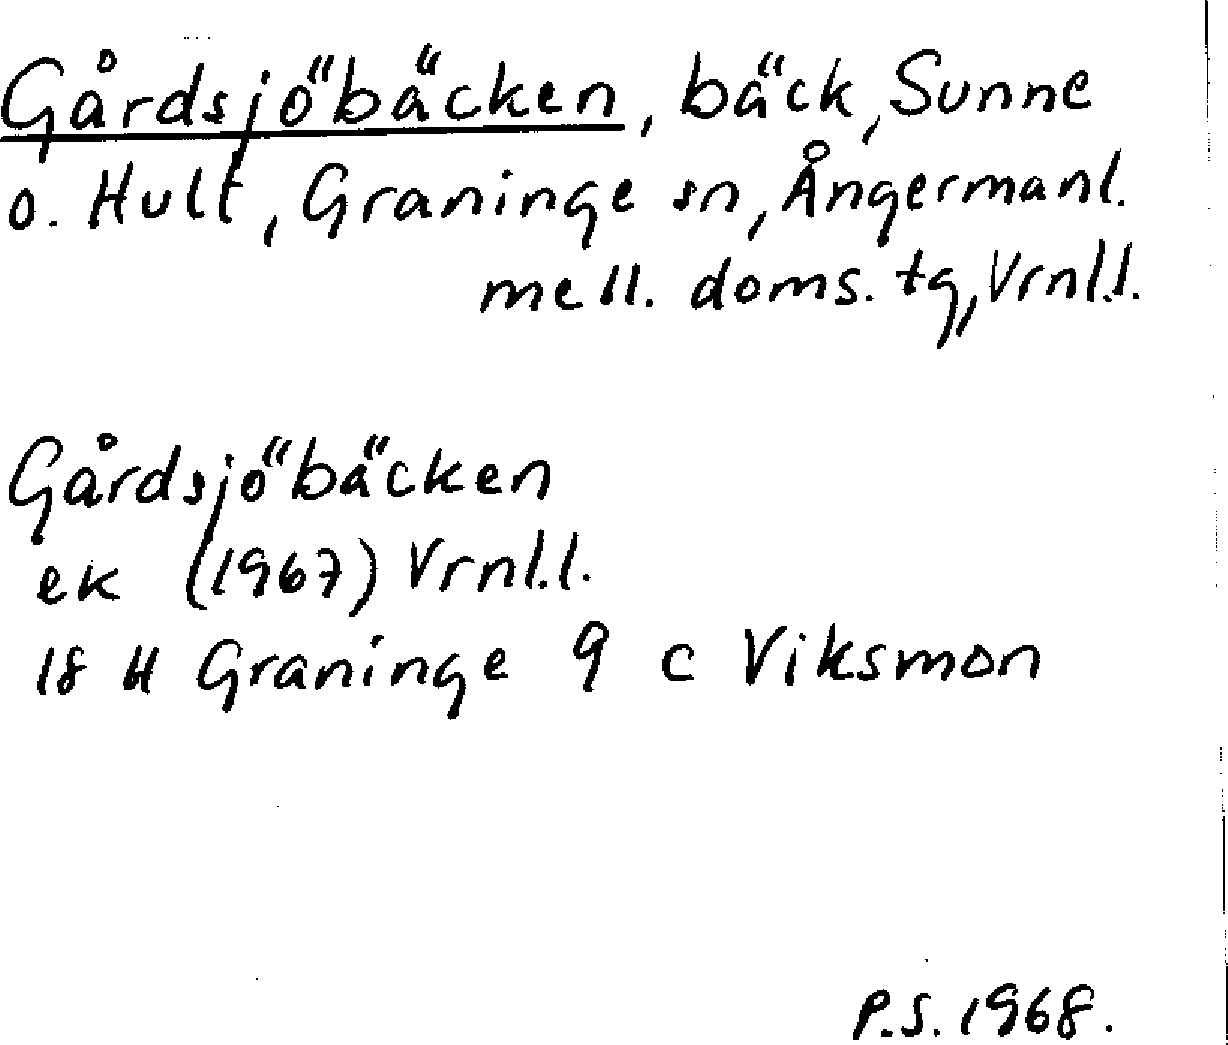 Gårdsjöbäcken, bäck, Sunne
o. Hult, Graninge sn, Ångermanl.
mell. doms. tg, Vrnl.l.
Gårdsjöbäcken
ek (1967) Vrnl.l.
18 H Graninge 9 c Viksmon
P.S. 1968.